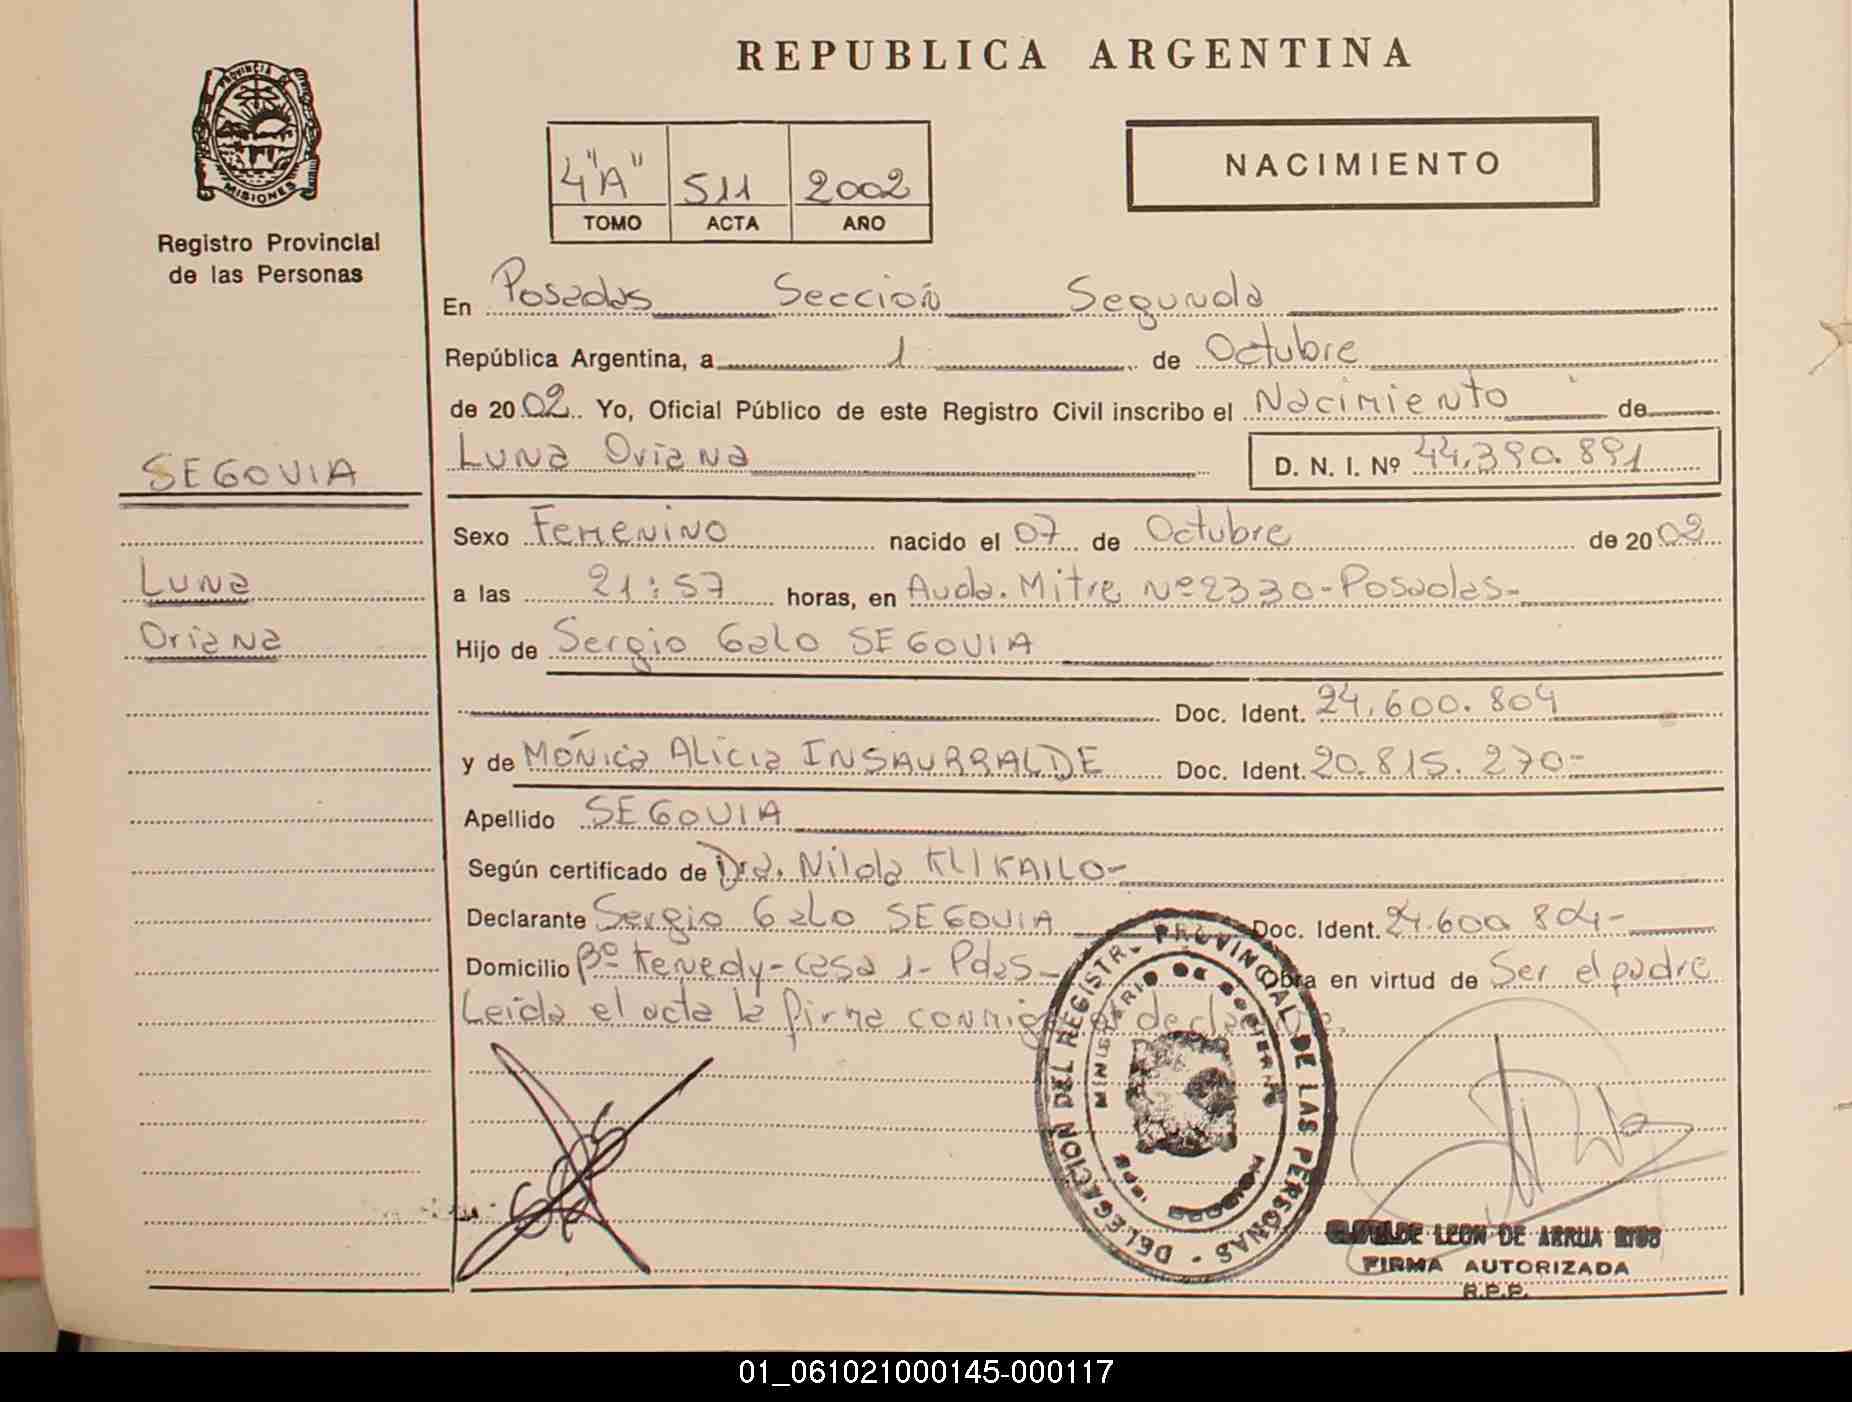 REPUBLICA ARGENTINA
PROVINCIA DE
MISIONES
Registro Provincial
de las Personas
4"A" 511 2002
TOMO ACTA AÑO
NACIMIENTO
En Posadas Sección Segunda
República Argentina, a 1 de Octubre
de 2002. Yo, Oficial Público de este Registro Civil inscribo el Nacimiento de
SEGOVIA
Luna Oriana D. N. I. Nº 44.390.891
Sexo Femenino nacido el 07 de Octubre de 2002
Luna
a las 21:57 horas, en Avda. Mitre Nº 2330-Posadas-
Oriana
Hijo de Sergio Galo SEGOVIA
Doc. Ident. 24.600.804
y de Mónica Alicia INSAURRALDE Doc. Ident. 20.815.270-
Apellido SEGOVIA
Según certificado de Dra. Nilda KLIKAILO-
Declarante Sergio Galo SEGOVIA Doc. Ident. 24.600.804-
Domicilio Bº Kenedy-casa 1-Pdas- Obra en virtud de Ser el padre
Leída el acta la firma conmigo el declarante.
DELEGACION DEL REGISTRO PROVINCIAL DE LAS PERSONAS
MINISTERIO DE GOBIERNO
LEON DE ARRUA
FIRMA AUTORIZADA
R.P.P.
01_061021000145-000117